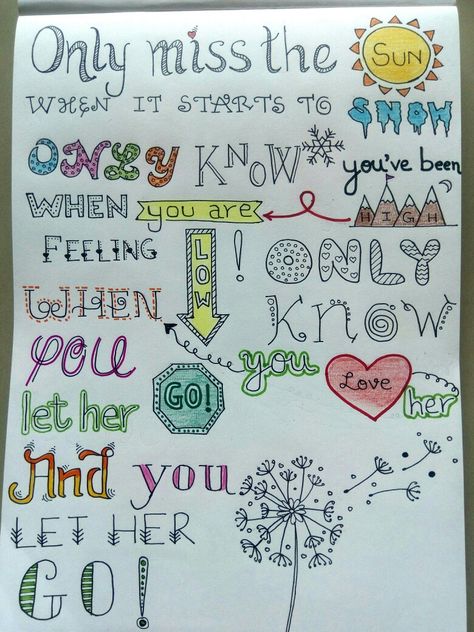 Only miss the SUN
WHEN IT STARTS TO SNOW
ONLY KNOW
you've been
HIGH
WHEN you are
FEELING LOW!
ONLY
Know
you Love her
WHEN
you
let her GO!
And you
LET HER
GO!